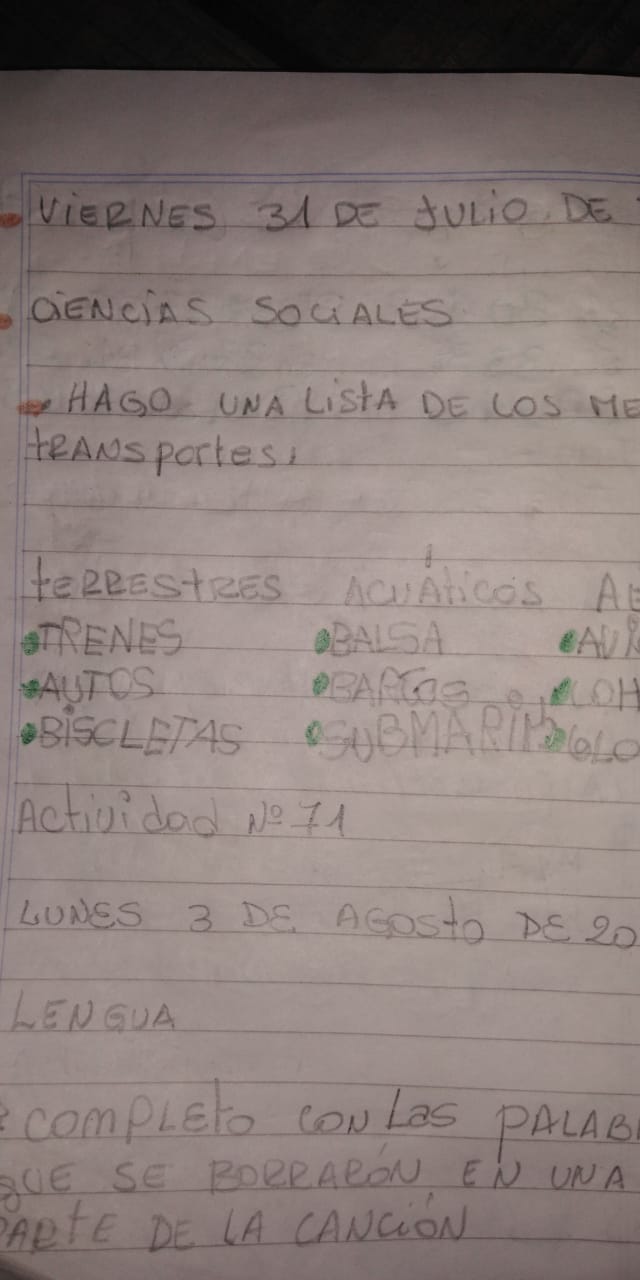 VIERNES 31 DE JULIO. DE
CIENCIAS SOCIALES
HAGO UNA LISTA DE LOS ME
tRANSportes,
tERRESTRES ACUÁTICOS AE
TRENES BALSA
AUTOS BARCOS
BISCLETAS SUBMARINO GLO
Actividad Nº 71
LUNES 3 DE AGOSTO DE 20
LENGUA
COMPLETO CON LAS PALAB
QUE SE BORRARÓN, EN UNA
PARTE DE LA CANCIÓN